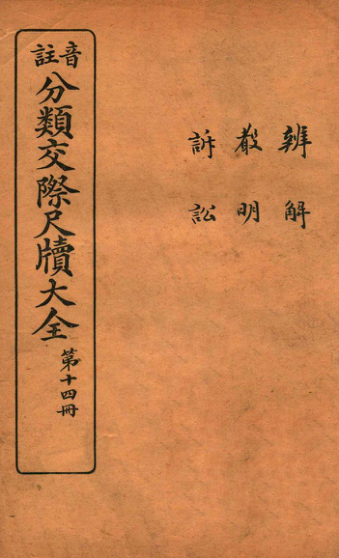 辨解
聲明
訴訟
音註
分類交際尺牘大全
第十四冊